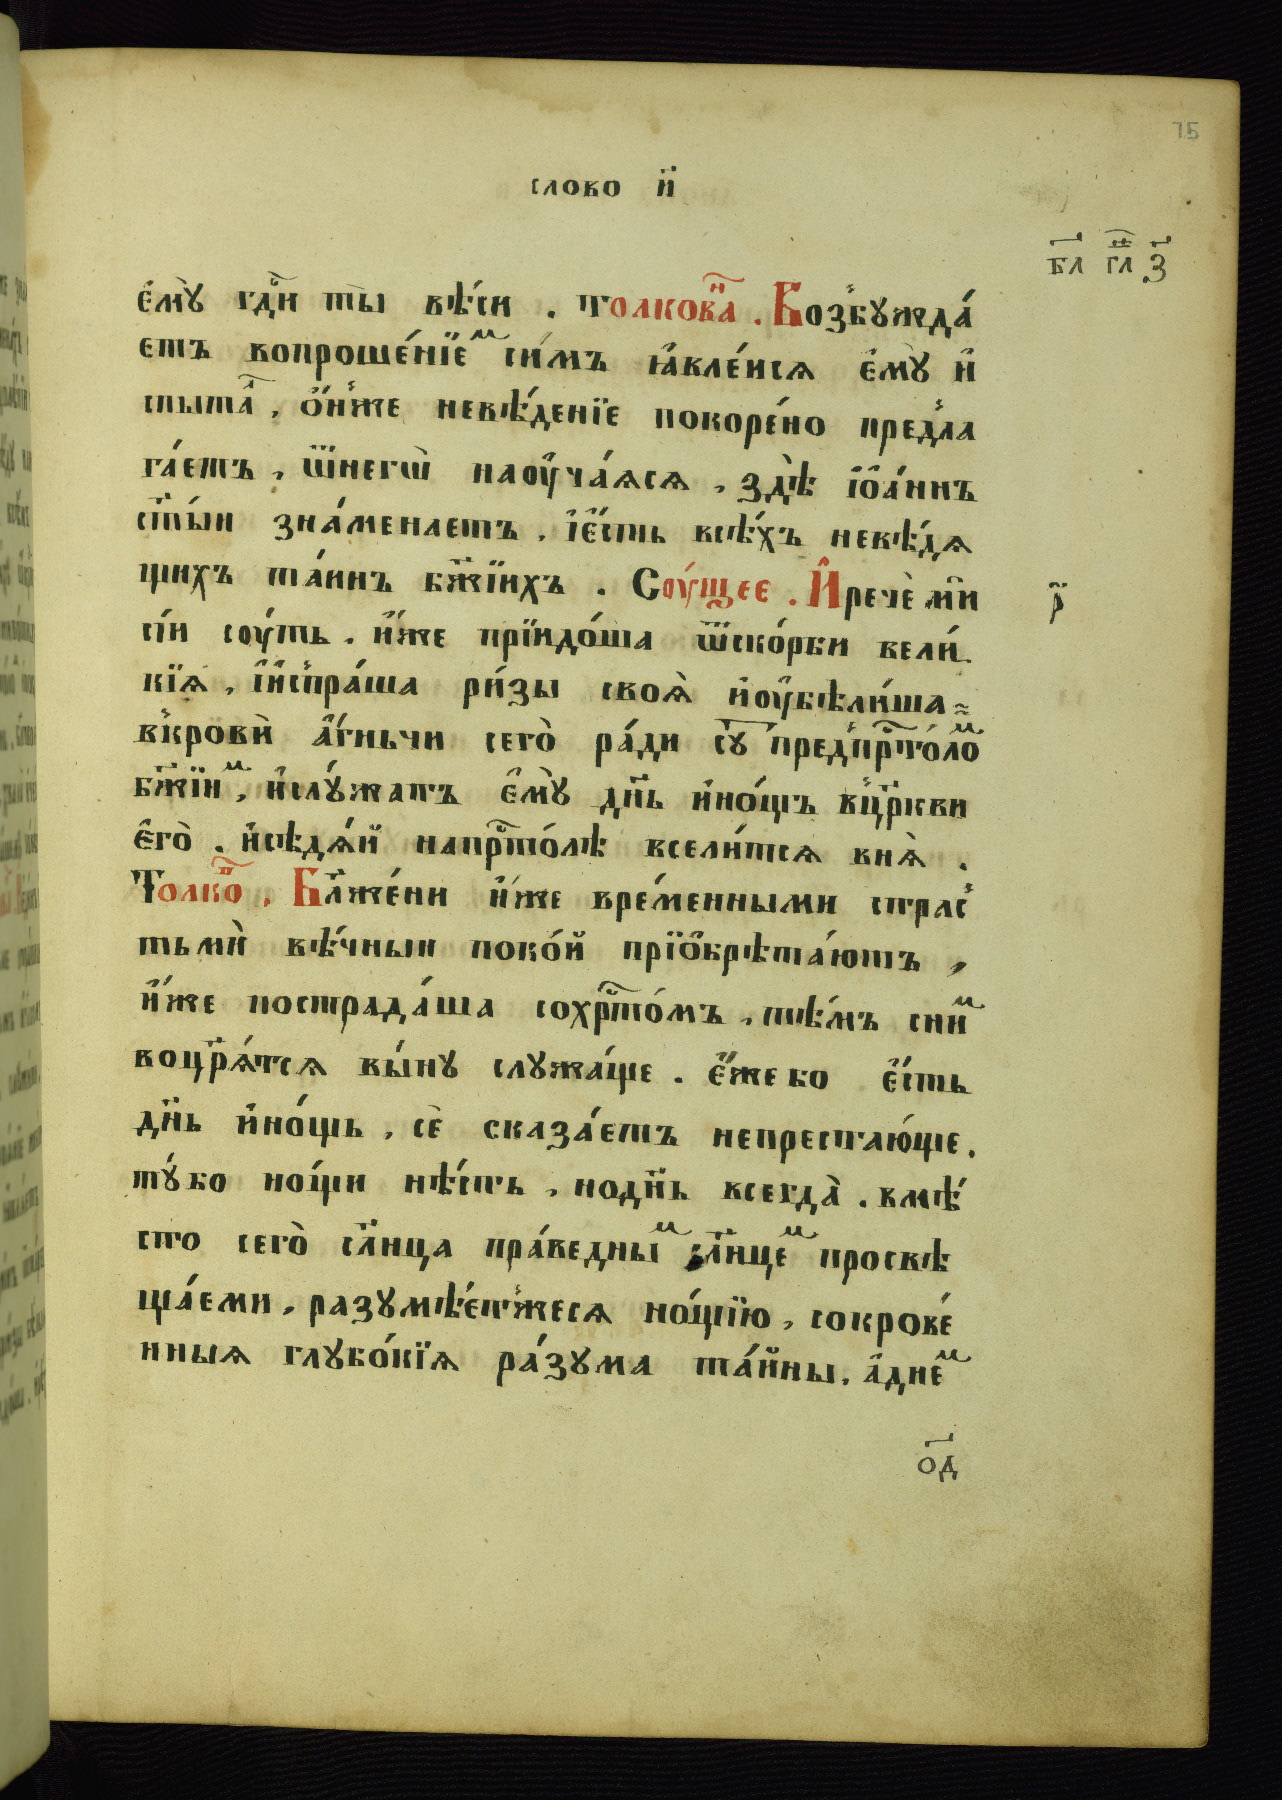 75
слово и҃
бл҃ гл҃ з҃
є҆мꙋ̀ гдⷭ҇и ты̀ вѣ́си . толкова́н҃і . Возбꙋжда́
етъ вопроше́нїеⷨ си́мъ ꙗ҆вле́йсѧ є҆мꙋ̀ и҆
спыта҄ , ѻ҆́ниже невѣ́денїе покоре́но предла
га́етъ , ѿнегѡ̀ наоу҆ча́ѧсѧ , здѣ̀ і҆ѡа́ннъ
ст҃ы́и зна́менаетъ . і҆є҆́сть всѣ́хъ невѣ́дѧ
щихъ та́инъ бж҃їихъ . Соу́щее . И҆речѐ мѝ
р҃
сі́и соу́ть . и҆́же прїидо́ша ѿско́рби вели́
кїѧ , і҆и҆спра́ша ри́зы своѧ̀ и҆оу҆бѣли́ша
вкровѝ а҆́гньчи сегѡ̀ ра́ди сꙋ́ⷮ предпрⷭ҇то́лоⷨ
бж҃їиⷨ , и҆слꙋ́жатъ є҆мꙋ̀ дн҃ь и҆но́щъ вцр҃кви
є҆го̀ . и҆сѣдѧ́й напрⷭ҇то́лѣ всели́тсѧ внѧ̀ .
Толко҃ , Бл҃же́ни и҆́же вре́менными страс
тьмѝ вѣ́чныи поко́й прїѡ҆брѣта́ютъ ,
и҆́же пострада́ша сохрⷭ҇то́мъ , тѣ́мъ сниⷨ
воцр҃ѧ́тсѧ вы́нꙋ слꙋжа́ще . є҆́же бо є҆́сть
дн҃ь и҆но́щь , сѐ сказа́етъ непрестаю́ще .
тꙋ́ бо но́щи нѣ́сть , нодн҃ь всегда̀ . вмѣ́
сто сего̀ сл҃нца пра́веднымⷨ сл҃нцеⷨ просвѣ
ща́еми , разꙋмѣ́етжесѧ но́щїю , сокрове́
нныѧ глꙋбо́кїѧ ра́зꙋма та́йны . а҆днеⷨ
од҃